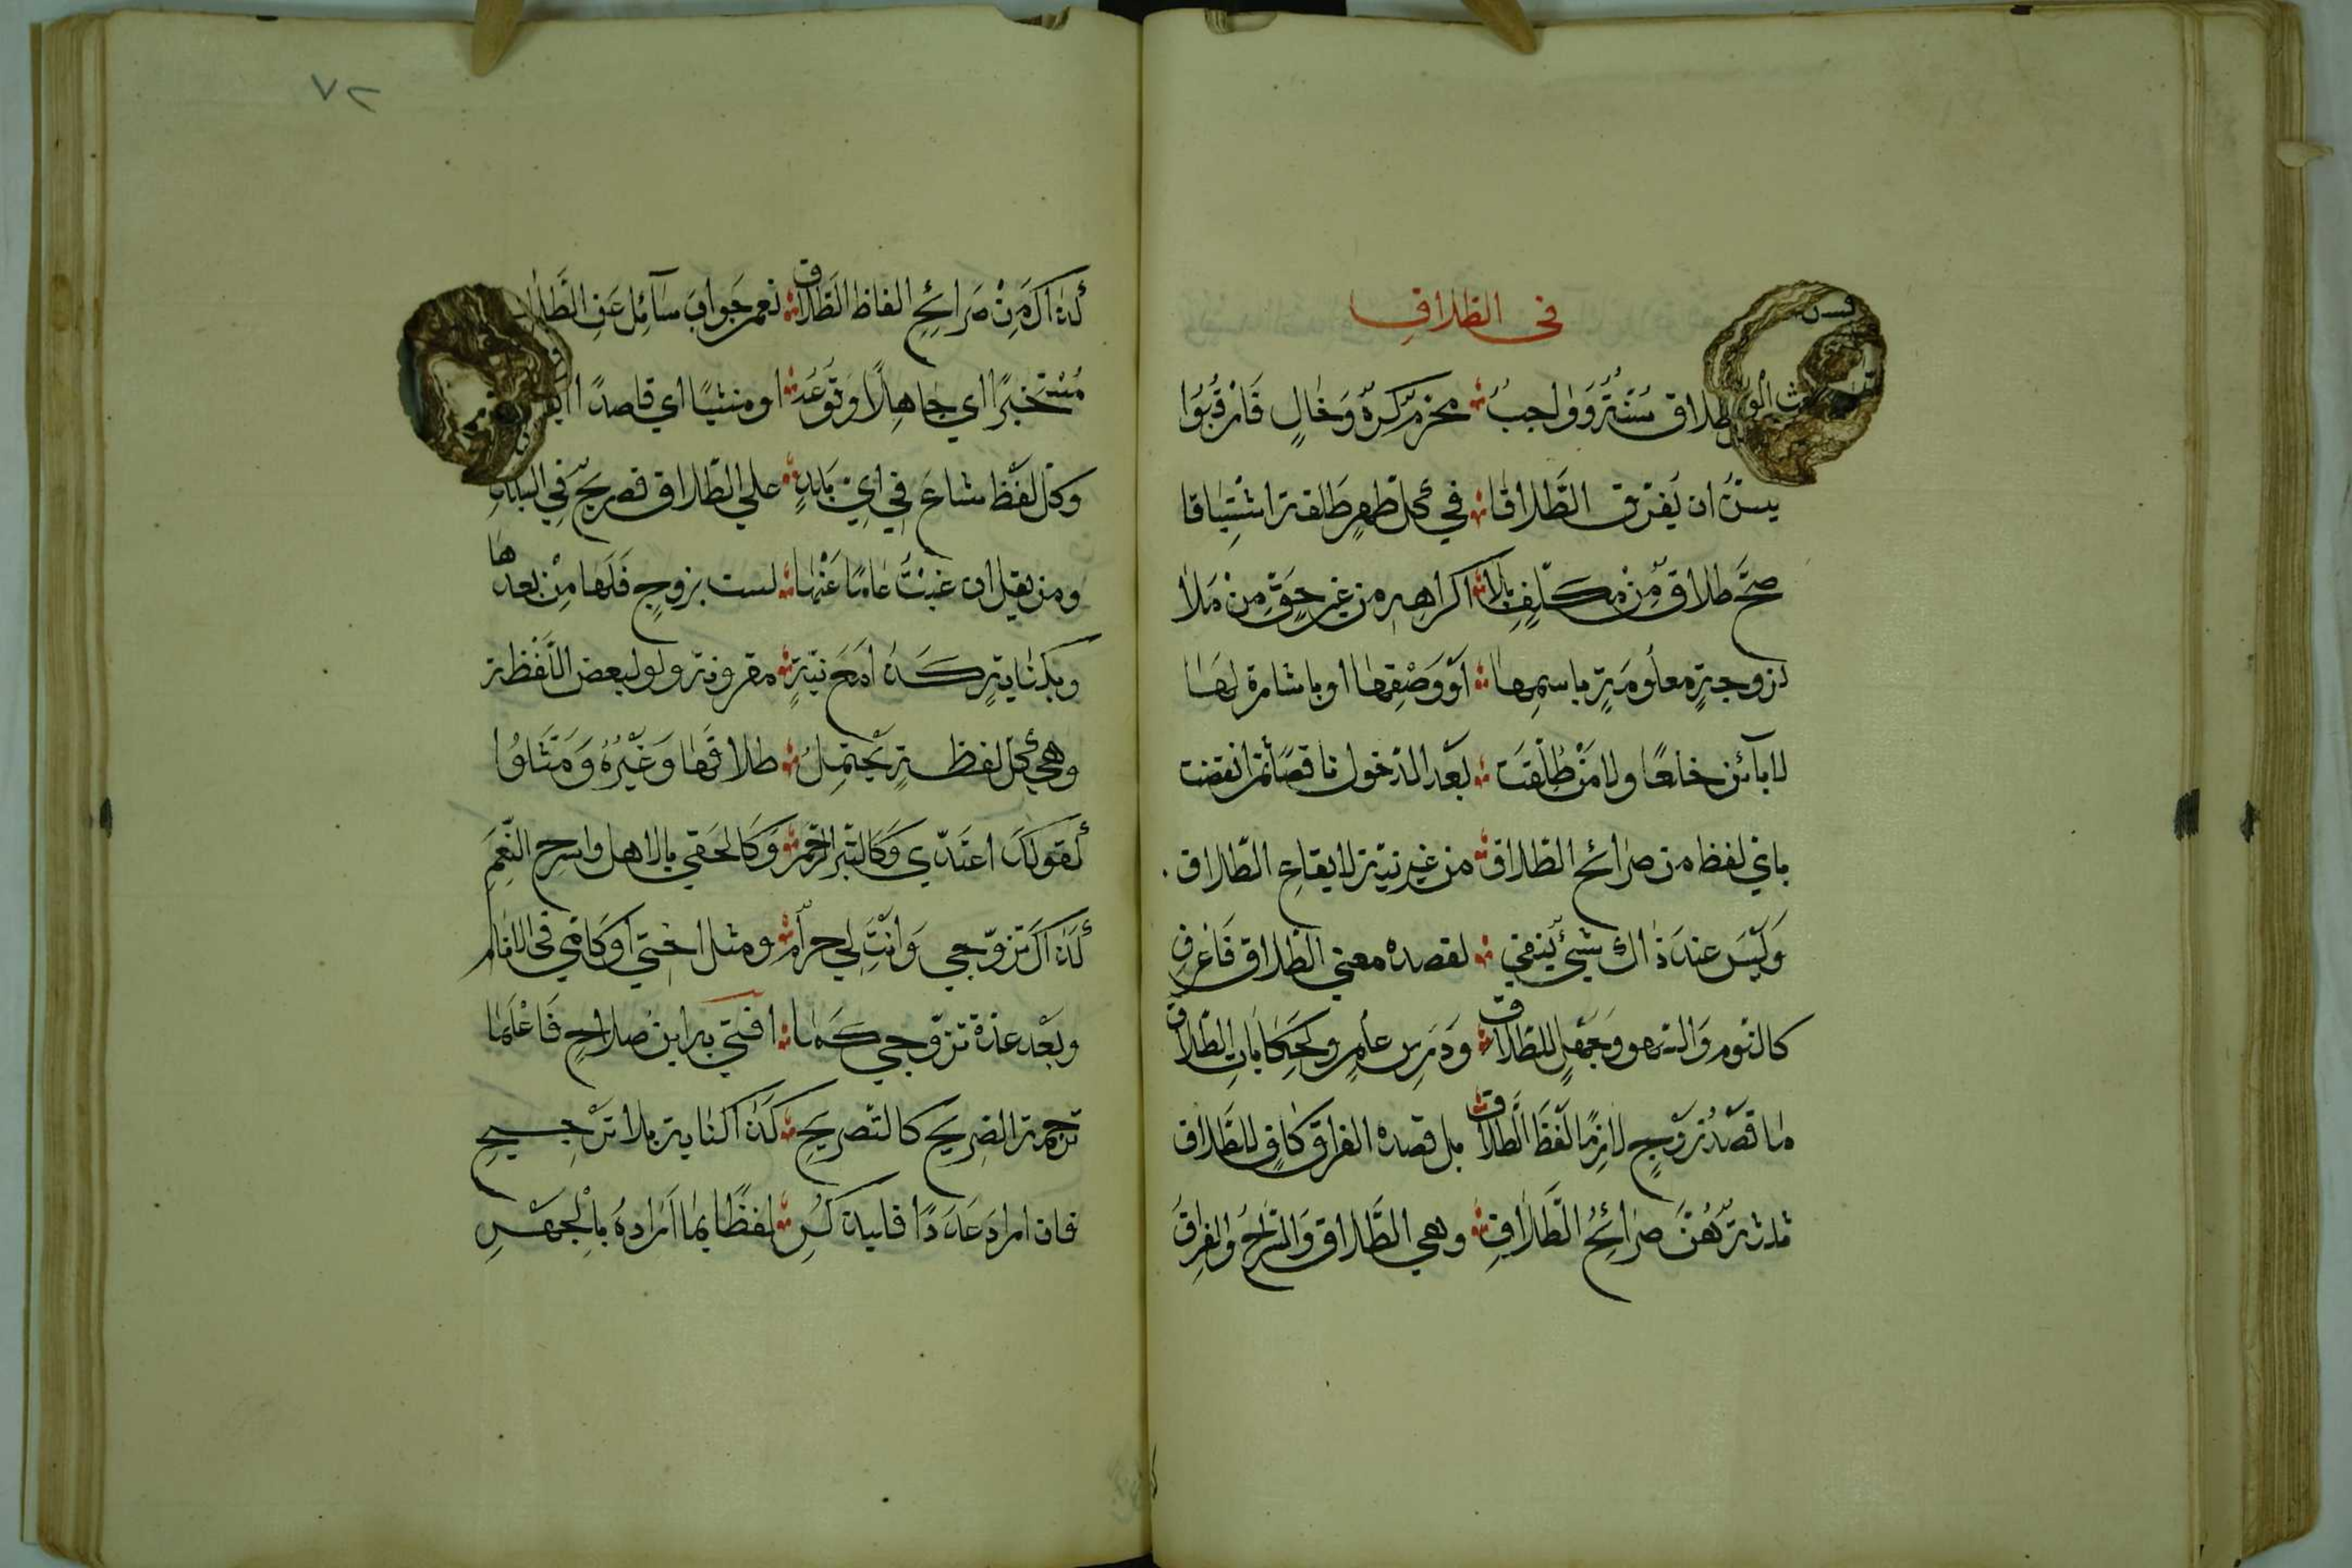 في الطلاق
طلاق سُنَّةٌ وَوَاجِبُ ؞ محرم كره وَخَالٍ فَارْقُبُوا
يسنّ ان يُفرّق الطَّلاقا ؞ في كل طهرٍ طلقة اشْتِيَاقا
صحَّ طلاقٌ مِنْ مكلّفٍ بلا ؞ اكراهه من غير حقٍّ مِنْ مَلا
لزوجةٍ معلومَةٍ باسمِها ؞ أوْ وَصْفِهَا أو باشارة لهَا
لا بآئن خلعًا ولا مَنْ طُلِّقَت ؞ بعد الدّخول ناقصًا ثم انقضت
باي لفظ من صرائح الطّلاق ؞ من غير نية لايقاع الطّلاق
وَلَيْسَ عندَ ذاك شيئٌ ينفي ؞ لقصده معنى الطّلاق فَاعْرفِ
كالنّوم وَالسّهو وَجَهلٍ للطّلاق ؞ وَدَرسِ علمٍ ولحكاياتِ الطّلاق
ما قصدُ زوْجٍ لازمًا لفظَ الطّلاق ؞ بل قصده الفراق كافٍ للطَّلاق
ثلثة هُنَّ صرائحُ الطَّلاقِ ؞ وهي الطَّلاق وَالسَّراحُ والفراقُ
٧٢
كذاكَ مِنْ صَرائحِ الفاظ الطّلاق ؞ نعم جَوابَ سَآئل عَنِ الطَّلا
مُسْتَخبرًا اي جاهلًا وَقوعَه ؞ او منشيًا اي قاصدًا
وكلّ لفظ شاعَ في اي بَلدةٍ ؞ على الطّلاق فصريحٌ في البلدةِ
ومن يقل ان غبتُ عامًا عَنْها ؞ لست بزوجٍ فَلَها مِنْ بعدها
وبكنايةٍ كَذا مَعَ نيّةٍ ؞ مقرونة ولو لبعض اللّفظة
وهي كلّ لفظةٍ تحتملُ ؞ طلاقَها وَغَيْرُهُ وَمَثَّلوُا
كقولكَ اعتدّي وَكَاستبرا الرّحم ؞ وَكَالحقي بالاهل واسرح النّعَم
كذاكَ تزوّجي وَانْتِ لي حرام ؞ ومثل اختي أو كَامّي في الانام
وبَعْد عدّة تزوّجي كما ؞ افتى به ابن صلاحٍ فَاعْلَما
ترجمة الصّريح كالتّصريحِ ؞ كذا كناية بلا ترْجيحِ
فان ارادَ عَدَدًا فليذكُرِ ؞ لفظًا بما ارادهُ بالْجهْرِ